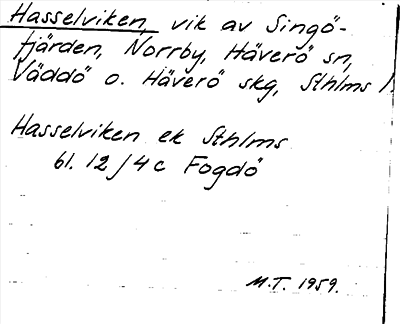 Hasselviken, vik av Singö-
fjärden, Norrby, Häverö sn,
Väddö o. Häverö skg, Sthlms l.
Hasselviken ek Sthlms
bl. 12/4c Fogdö
M.T. 1959.